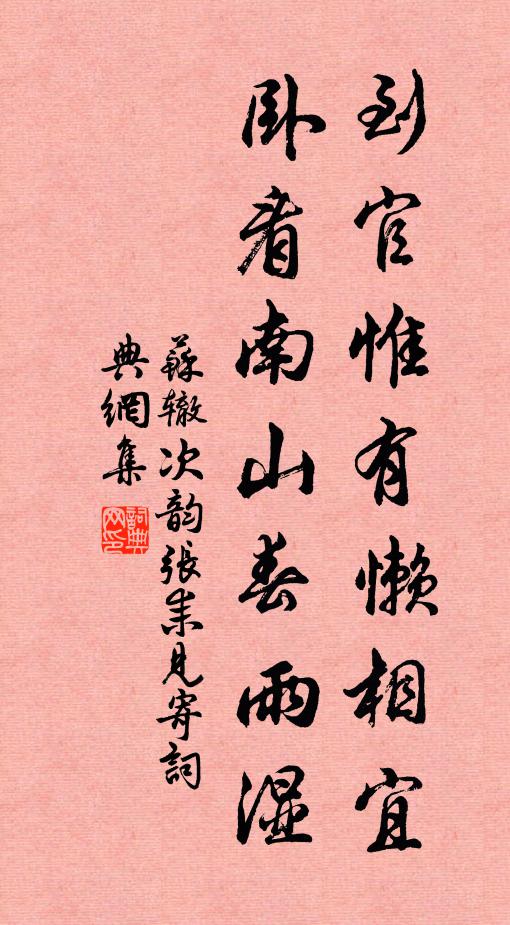 到官惟有懒相宜
卧看南山春雨湿
蘇辙次韵張耒見寄詞
典網集
詞典
网印